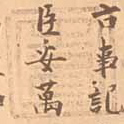 古事記
臣安萬